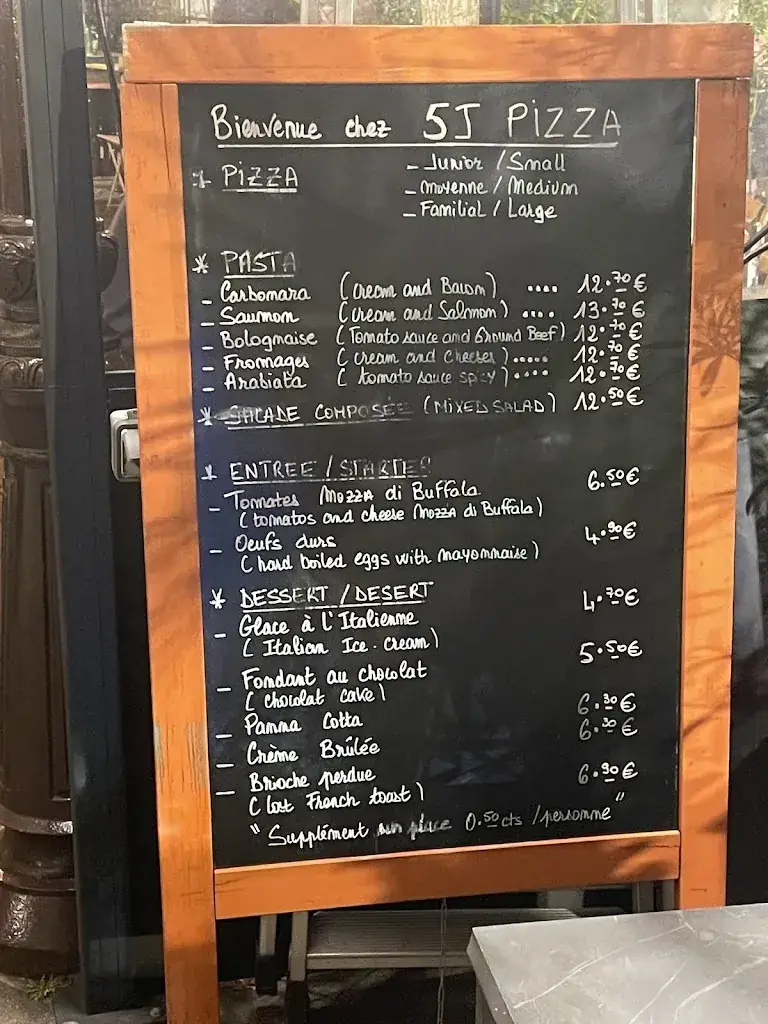 Bienvenue chez 5J PIZZA
* PIZZA
- Junior / Small
- Moyenne / Medium
- Familial / Large
* PASTA
- Carbonara (cream and Bacon) .... 12.70€
- Saumon (cream and Salmon) .... 13.70€
- Bolognaise (Tomato sauce and Ground Beef) 12.70€
- Fromages (cream and cheeses) ..... 12.70€
- Arabiata (tomato sauce spicy) .... 12.70€
* SALADE COMPOSÉE (MIXED SALAD) 12.50€
* ENTREE / STARTER
- Tomates Mozza di Buffala 6.50€
(tomatos and cheese Mozza di Buffala)
- Oeufs durs 4.90€
(hard boiled eggs with mayonnaise)
* DESSERT / DESERT
- Glace à l'Italienne 4.70€
(Italian Ice-cream)
- Fondant au chocolat 5.50€
(chocolat cake)
- Panna Cotta 6.30€
- Crème Brûlée 6.30€
- Brioche perdue 6.90€
(lost French toast)
"Supplément sur place 0.50cts /personne"